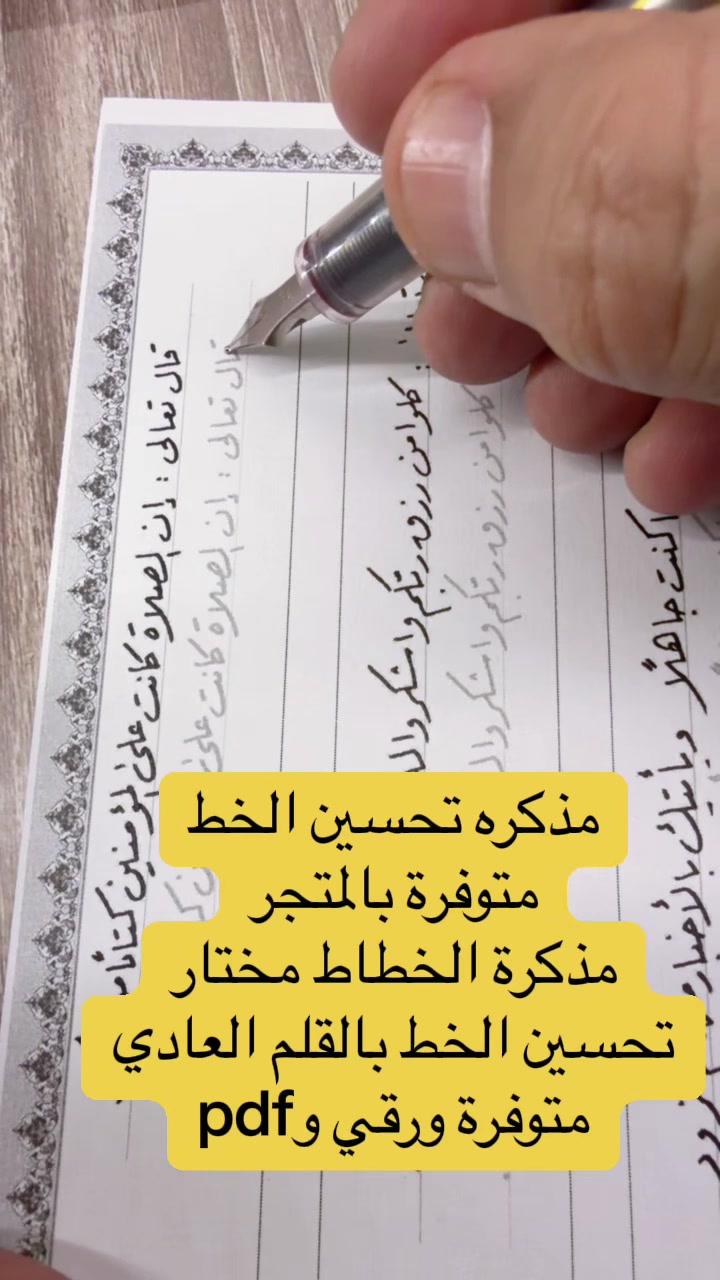 قال تعالى : إن الصلاة كانت على المؤمنين كتابًا
قال تعالى : إن الصلاة كانت على
كلوا من رزق ربكم واشكروا له
كلوا من رزق ربكم واشكروا
كنت جاهلًا ويأتيك بالأخبار من تزود
مذكره تحسين الخط
متوفرة بالمتجر
مذكرة الخطاط مختار
تحسين الخط بالقلم العادي
متوفرة ورقي وpdf